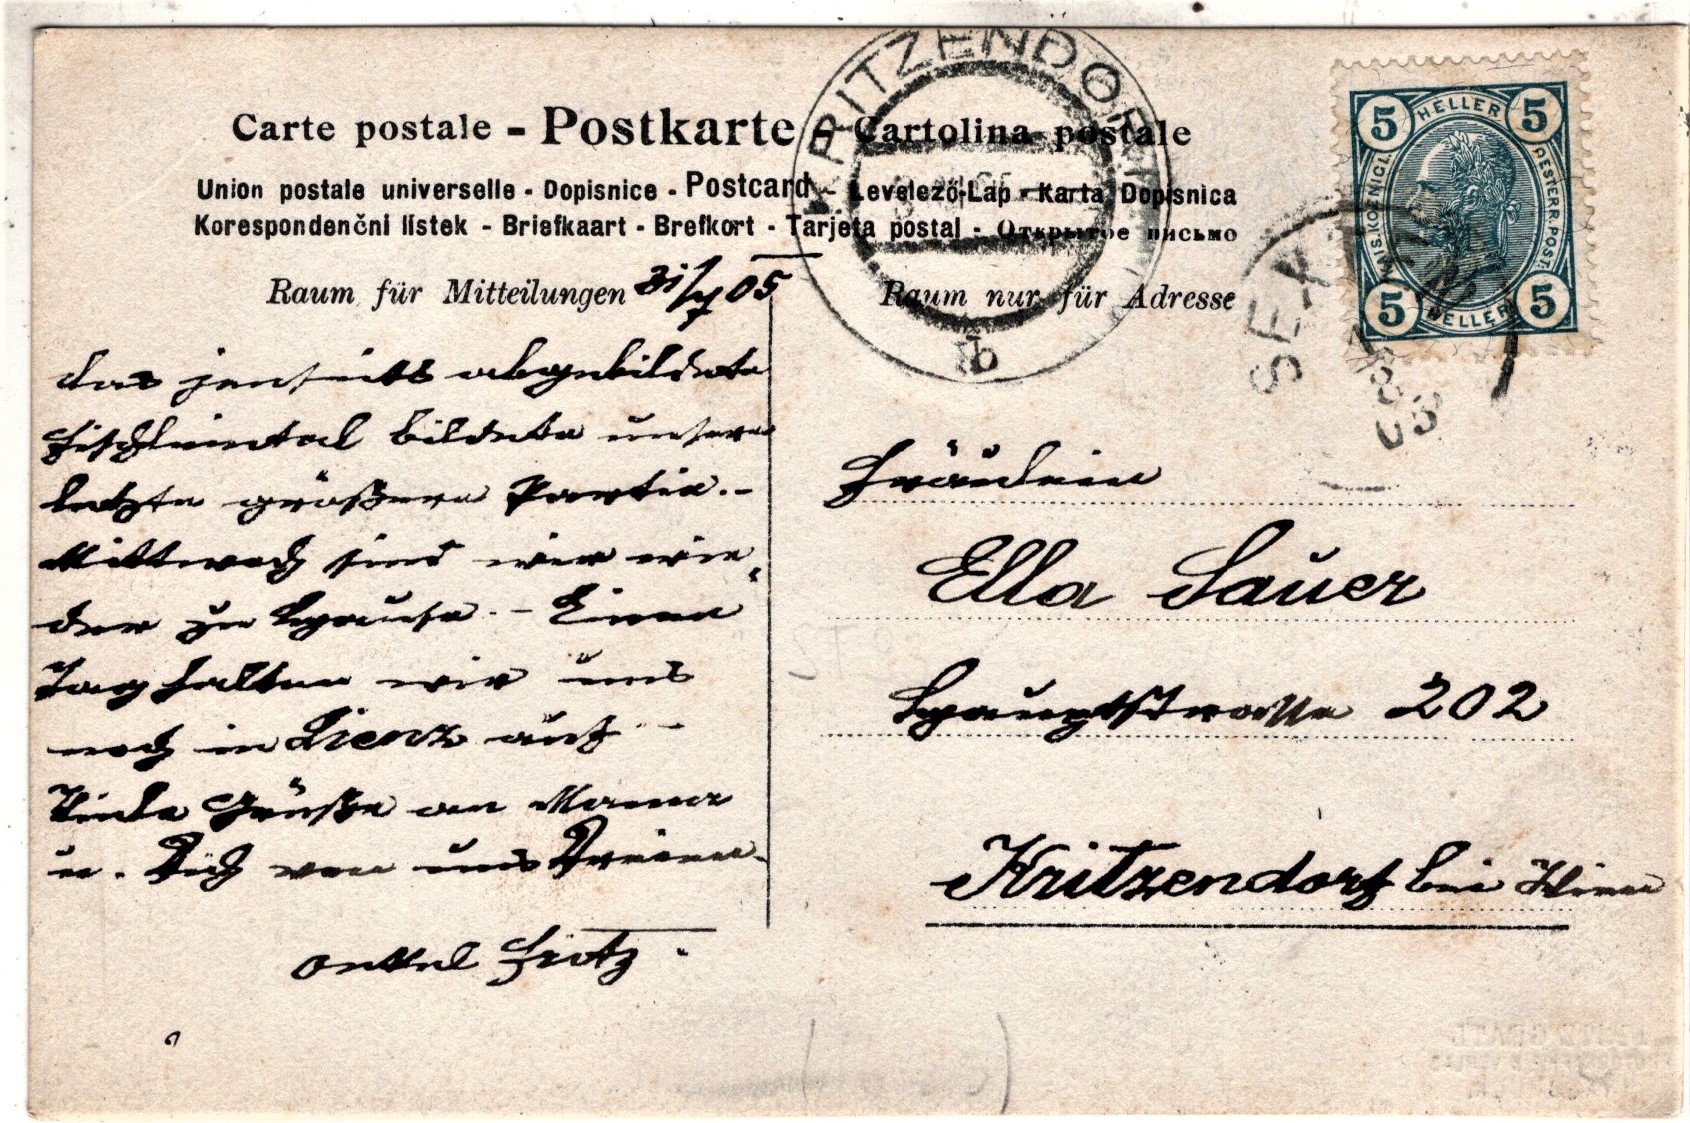 KRITZENDORF
1b
Carte postale - Postkarte - Cartolina postale
Union postale universelle - Dopisnice - Postcard - Levelező-Lap - Karta Dopisnica
Korespondenčni listek - Briefkaart - Brefkort - Tarjeta postal - Открытое письмо
Raum für Mitteilungen 31/7 05
Raum nur für Adresse
5 HELLER 5
KAIS. KOENIGL. OESTERR. POST.
5 HELLER 5
SEX
das jenseits abgebildete
Fischleintal bildete unsere
letzte größere Partie.-
Mittwoch sind wir wie-
der zu Hause. - Einen
Tag halten wir uns
noch in Lienz auf -
Viele Grüße an Mama
u. Dich von uns Dreien.
Onkel Fritz.
Fräulein
Ella Sauer
Hauptstrasse 202
Kritzendorf bei Wien